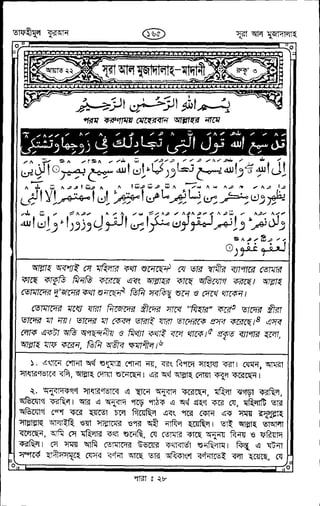 তাফহীমুল কুরআন ১৬৫ সূরা আল মুজাদালাহ
আয়াত ২২ সূরা আল মুজাদালাহ-মাদানী রুকূ' ৩
بِسْمِ اللهِ الرَّحْمٰنِ الرَّحِيْمِ
পরম করুণাময় মেহেরবান আল্লাহর নামে
قَدْ سَمِعَ اللهُ قَوْلَ الَّتِيْ تُجَادِلُكَ فِيْ زَوْجِهَا وَتَشْتَكِيْ
اِلَى اللهِ وَاللهُ يَسْمَعُ تَحَاوُرَكُمَا اِنَّ اللهَ سَمِيْعٌ بَصِيْرٌ ۝ اَلَّذِيْنَ
يُظٰهِرُوْنَ مِنْكُمْ مِّنْ نِّسَآئِهِمْ مَّا هُنَّ اُمَّهٰتِهِمْ اِنْ اُمَّهٰتُهُمْ اِلَّا الّٰٓئِيْ
وَلَدْنَهُمْ وَاِنَّهُمْ لَيَقُوْلُوْنَ مُنْكَرًا مِّنَ الْقَوْلِ وَزُوْرًا وَاِنَّ اللهَ
لَعَفُوٌّ غَفُوْرٌ ۝
আল্লাহ অবশ্যই সে মহিলার কথা শুনেছেন যে তার স্বামীর ব্যাপারে তোমার
কাছে কাকুতি মিনতি করেছে এবং আল্লাহর কাছে অভিযোগ করেছে। আল্লাহ
তোমাদের দু'জনের কথা শুনেছেন তিনি সবকিছু শুনে ও দেখে থাকেন।
তোমাদের মধ্যে যারা নিজেদের স্ত্রীদের সাথে "যিহার" করে তাদের স্ত্রীরা
তাদের মা নয়। তাদের মা কেবল তারাই যারা তাদেরকে প্রসব করেছে। এসব
লোক একটা অতি অপছন্দনীয় ও মিথ্যা কথাই বলে থাকে। প্রকৃত ব্যাপার হলো,
আল্লাহ মাফ করেন, তিনি অতীব ক্ষমাশীল।
১. এখানে শোনা অর্থ শুধুমাত্র শোনা নয়, বরং বিপদে সাহায্য করা। যেমন, আমরা
সাধারণভাবে বলি, আল্লাহ দোয়া শুনেছেন। এর অর্থ আল্লাহ দোয়া কবুল করেছেন।
২. অনুবাদকগণ সাধারণভাবে এ স্থানে অনুবাদ করেছেন, মহিলা ঝগড়া করছিল,
অভিযোগ করছিল। আর এ অনুবাদ পড়ে পাঠক এ অর্থ গ্রহণ করে যে, মহিলাটি তার
অভিযোগ পেশ করে হয়তো চলে গিয়েছিল এবং পরে কোন এক সময় রসূলুল্লাহ
সাল্লাল্লাহু আলাইহি ওয়া সাল্লামের ওপর অহী নাযিল হয়েছিল। তাই আল্লাহ তা'আলা
বলেছেন, আমি সে মহিলার কথা শুনেছি, যে তোমার কাছে অনুনয় বিনয় ও ফরিয়াদ
করছিল। সে সময় আমি তোমাদের উভয়ের কথাবার্তা শুনছিলাম। কিন্তু এ ঘটনা
সম্পর্কে হাদীসসমূহে যেসব বর্ণনা আছে তার অধিকাংশ বর্ণনাতেই বলা হয়েছে, যে
পারা : ২৮